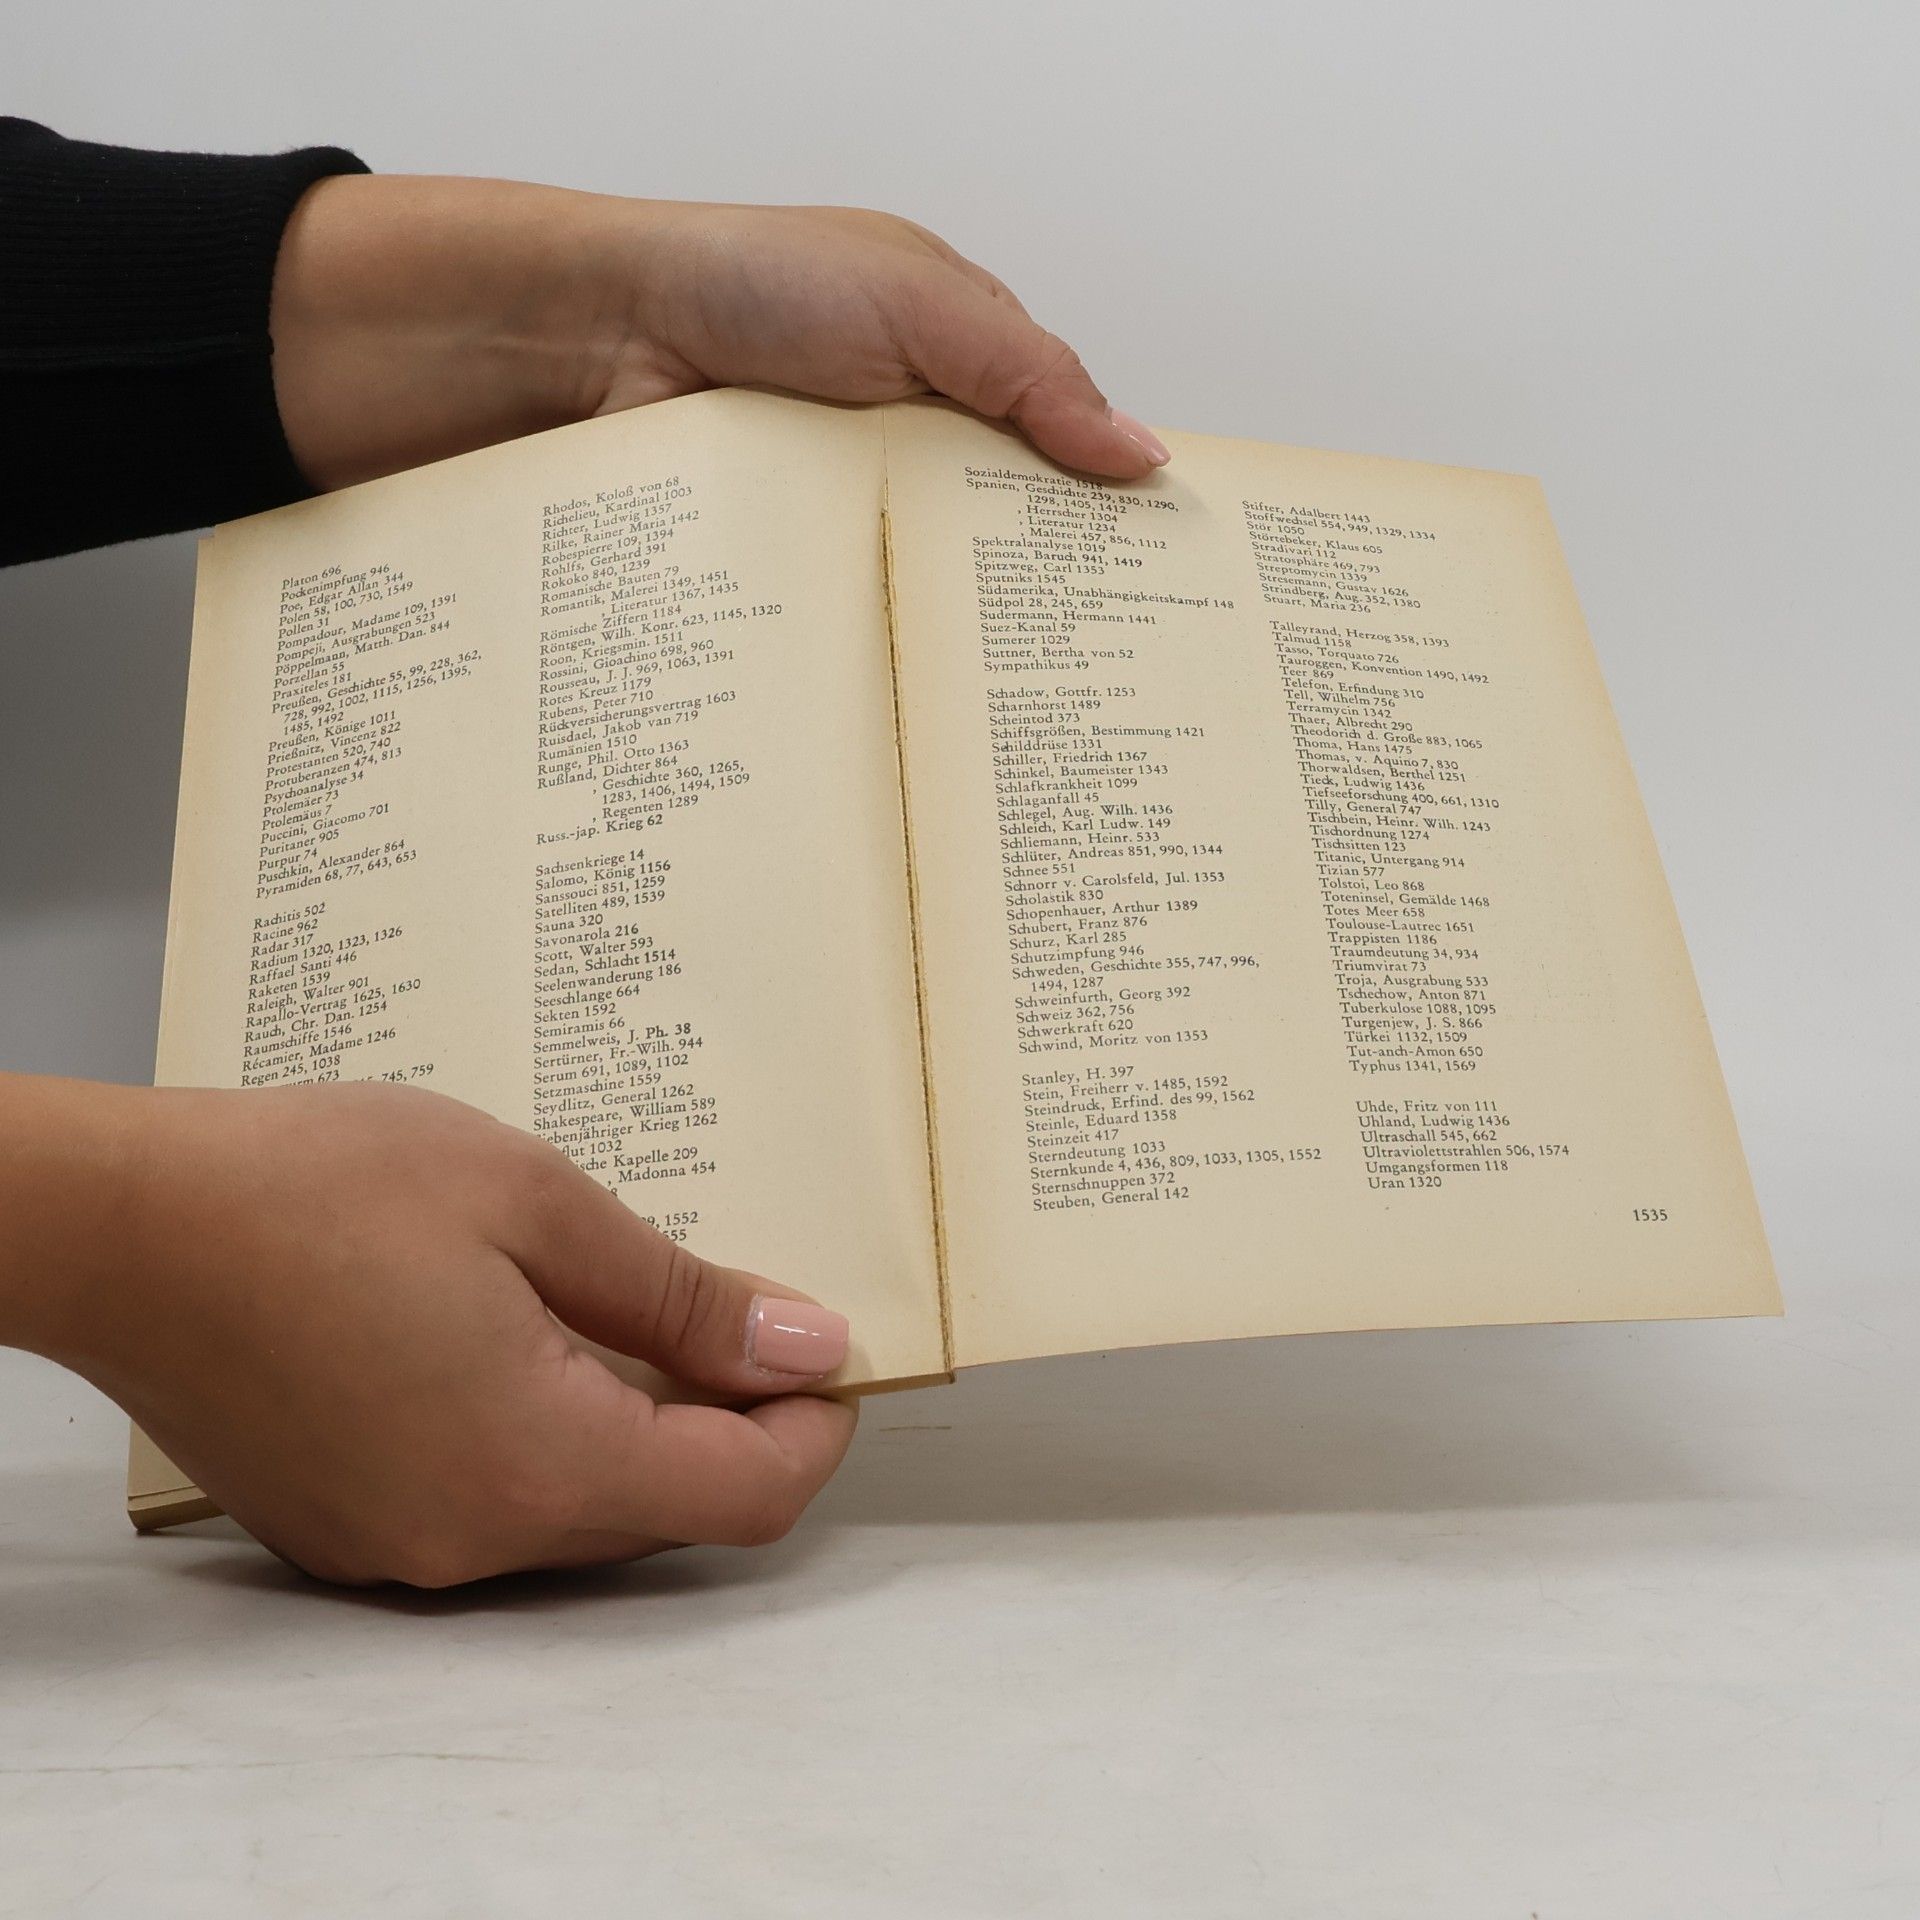 Platon 696
Pockenimpfung 946
Poe, Edgar Allan 344
Polen 58, 100, 730, 1549
Pollen 31
Pompadour, Madame 109, 1391
Pompeji, Ausgrabungen 523
Pöppelmann, Matth. Dan. 844
Porzellan 55
Praxiteles 181
Preußen, Geschichte 55, 99, 228, 362,
728, 992, 1002, 1115, 1256, 1395,
1485, 1492
Preußen, Könige 1011
Prießnitz, Vincenz 822
Protestanten 520, 740
Protuberanzen 474, 813
Psychoanalyse 34
Ptolemäer 73
Ptolemäus 7
Puccini, Giacomo 701
Puritaner 905
Purpur 74
Puschkin, Alexander 864
Pyramiden 68, 77, 643, 653
Rachitis 502
Racine 962
Radar 317
Radium 1320, 1323, 1326
Raffael Santi 446
Raketen 1539
Raleigh, Walter 901
Rapallo-Vertrag 1625, 1630
Rauch, Chr. Dan. 1254
Raumschiffe 1546
Récamier, Madame 1246
Regen 245, 1038
673
745, 759
Rhodos, Koloß von 68
Richelieu, Kardinal 1003
Richter, Ludwig 1357
Rilke, Rainer Maria 1442
Robespierre 109, 1394
Rohlfs, Gerhard 391
Rokoko 840, 1239
Romanische Bauten 79
Romantik, Malerei 1349, 1451
, Literatur 1367, 1435
Römische Ziffern 1184
Röntgen, Wilh. Konr. 623, 1145, 1320
Roon, Kriegsmin. 1511
Rossini, Gioachino 698, 960
Rousseau, J. J. 969, 1063, 1391
Rotes Kreuz 1179
Rubens, Peter 710
Rückversicherungsvertrag 1603
Ruisdael, Jakob van 719
Rumänien 1510
Runge, Phil. Otto 1363
Rußland, Dichter 864
, Geschichte 360, 1265,
1283, 1406, 1494, 1509
, Regenten 1289
Russ.-jap. Krieg 62
Sachsenkriege 14
Salomo, König 1156
Sanssouci 851, 1259
Satelliten 489, 1539
Sauna 320
Savonarola 216
Scott, Walter 593
Sedan, Schlacht 1514
Seelenwanderung 186
Seeschlange 664
Sekten 1592
Semiramis 66
Semmelweis, J. Ph. 38
Sertürner, Fr.-Wilh. 944
Serum 691, 1089, 1102
Setzmaschine 1559
Seydlitz, General 1262
Shakespeare, William 589
iebenjähriger Krieg 1262
flut 1032
ische Kapelle 209
, Madonna 454
8
9, 1552
555
Sozialdemokratie 1518
Spanien, Geschichte 239, 830, 1290,
1298, 1405, 1412
, Herrscher 1304
, Literatur 1234
, Malerei 457, 856, 1112
Spektralanalyse 1019
Spinoza, Baruch 941, 1419
Spitzweg, Carl 1353
Sputniks 1545
Südamerika, Unabhängigkeitskampf 148
Südpol 28, 245, 659
Sudermann, Hermann 1441
Suez-Kanal 59
Sumerer 1029
Suttner, Bertha von 52
Sympathikus 49
Schadow, Gottfr. 1253
Scharnhorst 1489
Scheintod 373
Schiffsgrößen, Bestimmung 1421
Schilddrüse 1331
Schiller, Friedrich 1367
Schinkel, Baumeister 1343
Schlafkrankheit 1099
Schlaganfall 45
Schlegel, Aug. Wilh. 1436
Schleich, Karl Ludw. 149
Schliemann, Heinr. 533
Schlüter, Andreas 851, 990, 1344
Schnee 551
Schnorr v. Carolsfeld, Jul. 1353
Scholastik 830
Schopenhauer, Arthur 1389
Schubert, Franz 876
Schurz, Karl 285
Schutzimpfung 946
Schweden, Geschichte 355, 747, 996,
1494, 1287
Schweinfurth, Georg 392
Schweiz 362, 756
Schwerkraft 620
Schwind, Moritz von 1353
Stanley, H. 397
Stein, Freiherr v. 1485, 1592
Steindruck, Erfind. des 99, 1562
Steinle, Eduard 1358
Steinzeit 417
Sterndeutung 1033
Sternkunde 4, 436, 809, 1033, 1305, 1552
Sternschnuppen 372
Steuben, General 142
Stifter, Adalbert 1443
Stoffwechsel 554, 949, 1329, 1334
Stör 1050
Störtebeker, Klaus 605
Stradivari 112
Stratosphäre 469, 793
Streptomycin 1339
Stresemann, Gustav 1626
Strindberg, Aug. 352, 1380
Stuart, Maria 236
Talleyrand, Herzog 358, 1393
Talmud 1158
Tasso, Torquato 726
Tauroggen, Konvention 1490, 1492
Teer 869
Telefon, Erfindung 310
Tell, Wilhelm 756
Terramycin 1342
Thaer, Albrecht 290
Theodorich d. Große 883, 1065
Thoma, Hans 1475
Thomas, v. Aquino 7, 830
Thorwaldsen, Berthel 1251
Tieck, Ludwig 1436
Tiefseeforschung 400, 661, 1310
Tilly, General 747
Tischbein, Heinr. Wilh. 1243
Tischordnung 1274
Tischsitten 123
Titanic, Untergang 914
Tizian 577
Tolstoi, Leo 868
Toteninsel, Gemälde 1468
Totes Meer 658
Toulouse-Lautrec 1651
Trappisten 1186
Traumdeutung 34, 934
Triumvirat 73
Troja, Ausgrabung 533
Tschechow, Anton 871
Tuberkulose 1088, 1095
Turgenjew, J. S. 866
Türkei 1132, 1509
Tut-anch-Amon 650
Typhus 1341, 1569
Uhde, Fritz von 111
Uhland, Ludwig 1436
Ultraschall 545, 662
Ultraviolettstrahlen 506, 1574
Umgangsformen 118
Uran 1320
1535